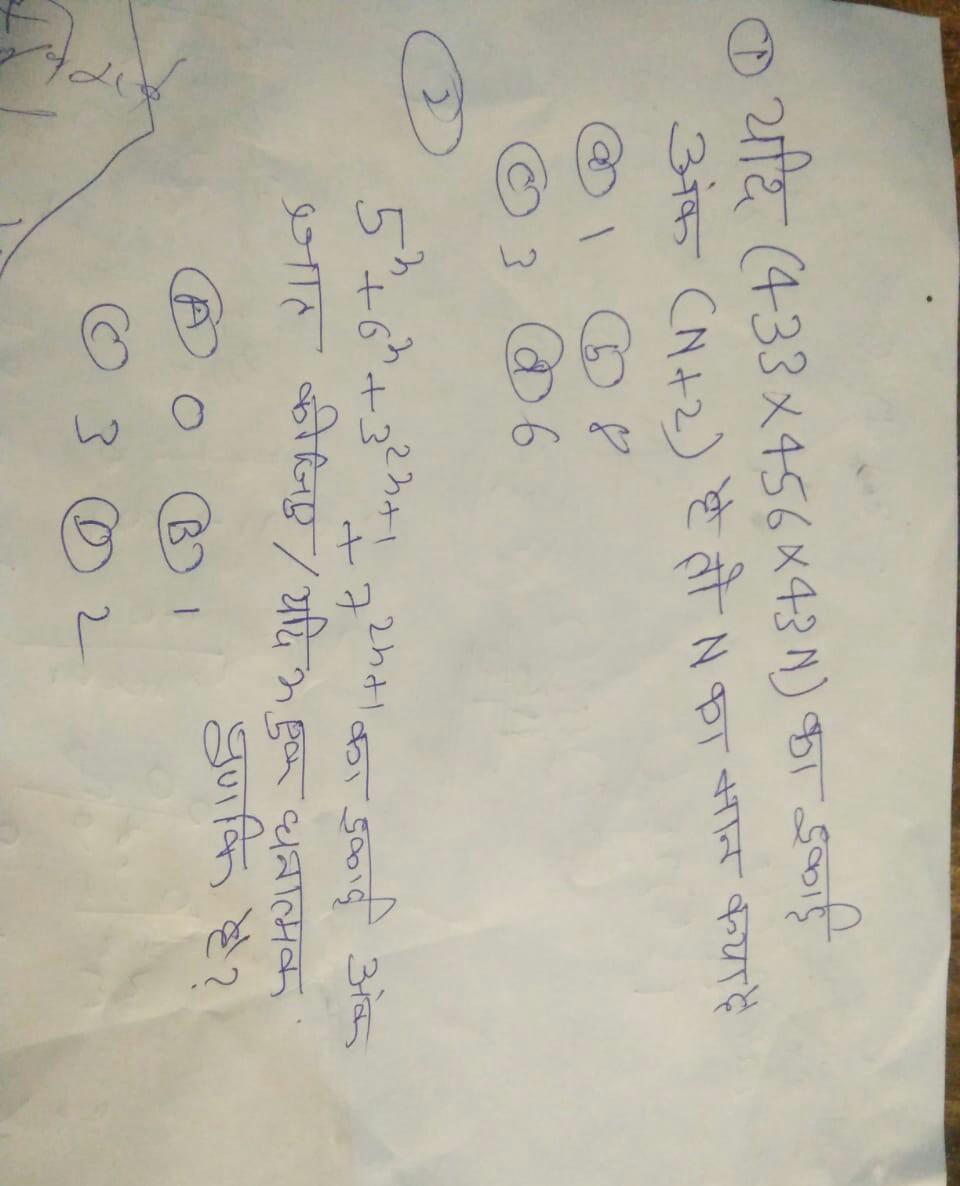 ① यदि (433×456×43N) का इकाई
अंक (N+2) है तो N का मान क्या है
ⓐ 1 ⓑ 8
ⓒ 3 ⓓ 6
②
5ⁿ + 6ⁿ + 3²ⁿ⁺¹ + 7²ⁿ⁺¹ का इकाई अंक
ज्ञात कीजिए / यदि n एक धनात्मक
पुर्णांक है?
Ⓐ 0 Ⓑ 1
Ⓒ 3 Ⓓ 2